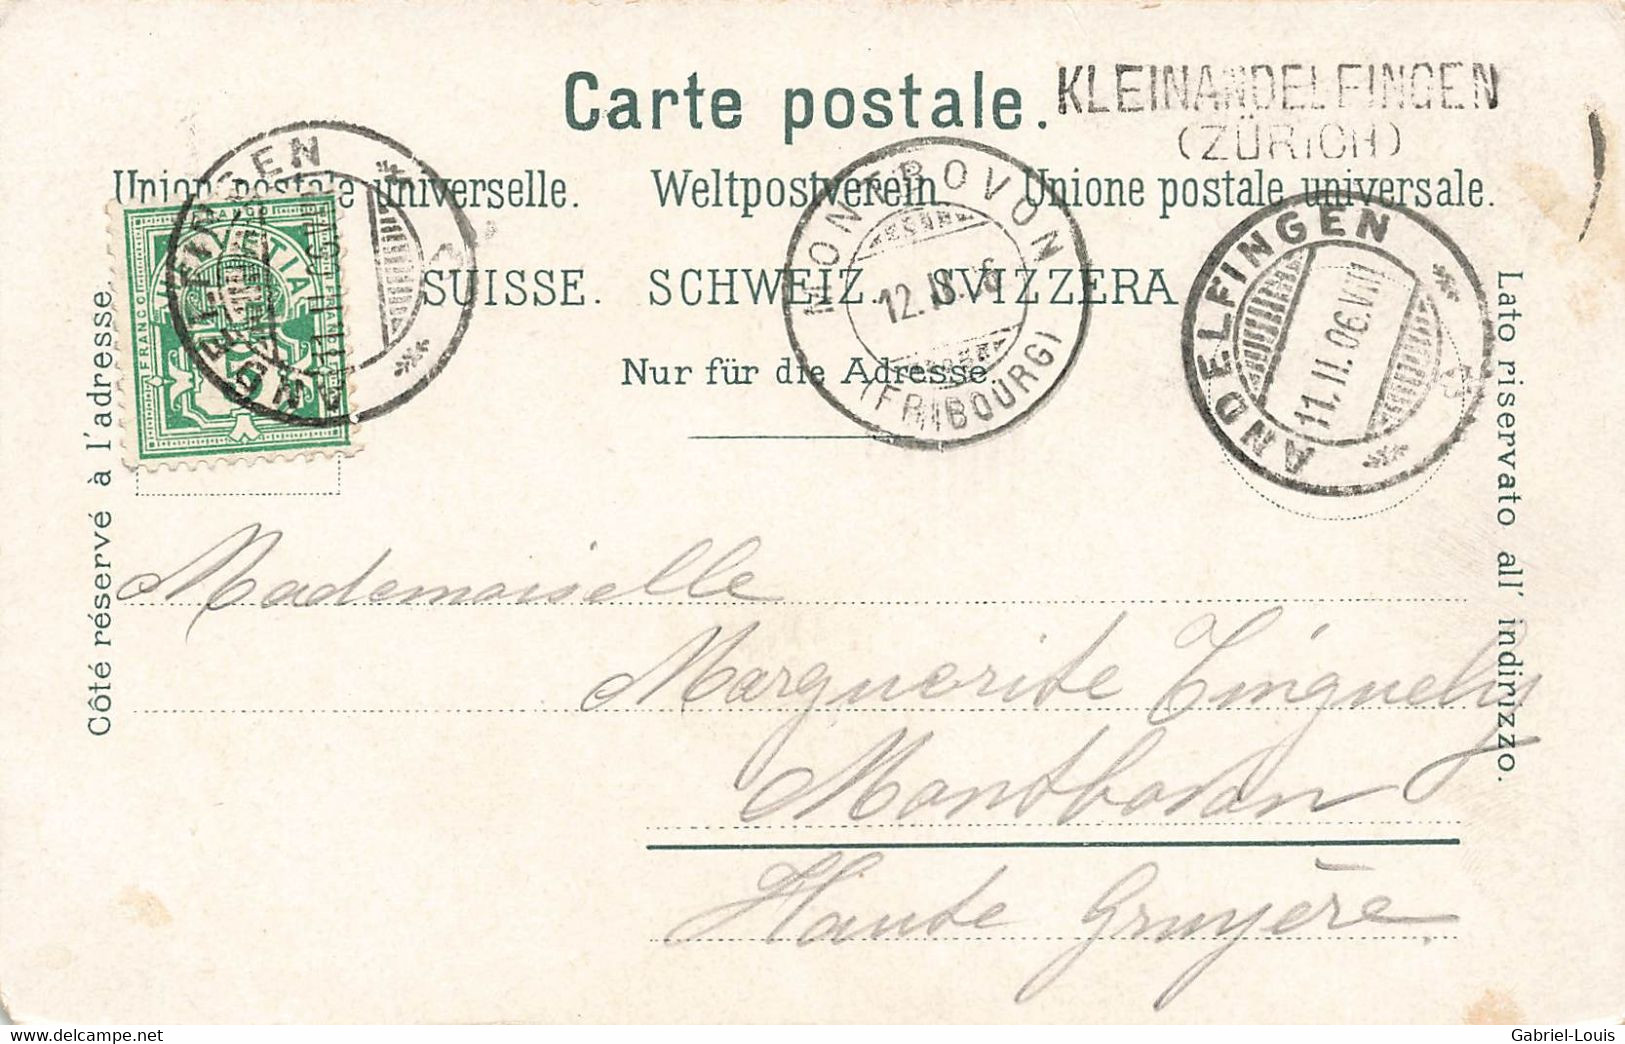 Carte postale.
KLEINANDELFINGEN
(ZÜRICH)
Union postale universelle. Weltpostverein. Unione postale universale.
SUISSE. SCHWEIZ. SVIZZERA
Nur für die Adresse.
Côté réservé à l'adresse.
Lato riservato all' indirizzo.
FRANCO
HELVETIA
ANDELFINGEN
MONTBOVON
(FRIBOURG)
ANDELFINGEN
11.II.06.VII
Mademoiselle
Marguerite Tinguely
Montbovon
Haute Gruyère.
www.delcampe.net
Gabriel-Louis